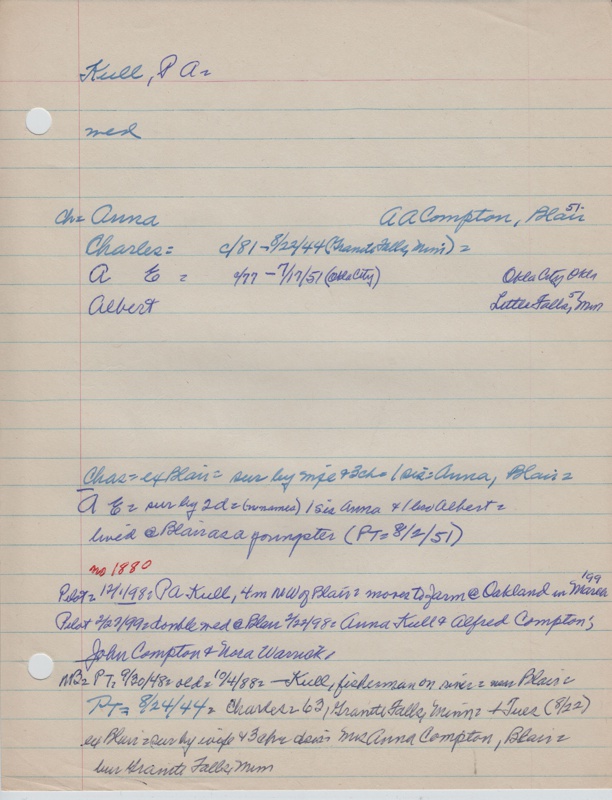 Kull, P A =
med
ch = Anna A A Compton, Blair 51
Charles = c/81 - 8/22/44 (Granite Falls, Minn) =
A E = c/77 - 7/17/51 (Okla City) Okla City, Okla
Albert Little Falls, Minn 51
Chas = ex Blair = sur by wife + 3 ch = 1 sis = Anna, Blair =
A E = sur by 2 d = (no names) 1 sis Anna + 1 bro Albert =
lived @ Blair as a youngster (PT = 8/2/51)
no 1880
Pilot = 12/1/98 = P A Kull, 4 m NW of Blair = moves to farm @ Oakland in March '99
Pilot 2/27/99 = double wed @ Blair 2/22/98 = Anna Kull & Alfred Compton;
John Compton & Nora Warrick,
NB = PT = 9/30/48 = old = 10/4/88 = — Kull, fisherman on river = near Blair =
PT = 8/24/44 = Charles = 63, Granite Falls, Minn = + Tues (8/22)
ex Blair = sur by wife + 3 ch = sis = Mrs Anna Compton, Blair =
bur Granite Falls, Minn